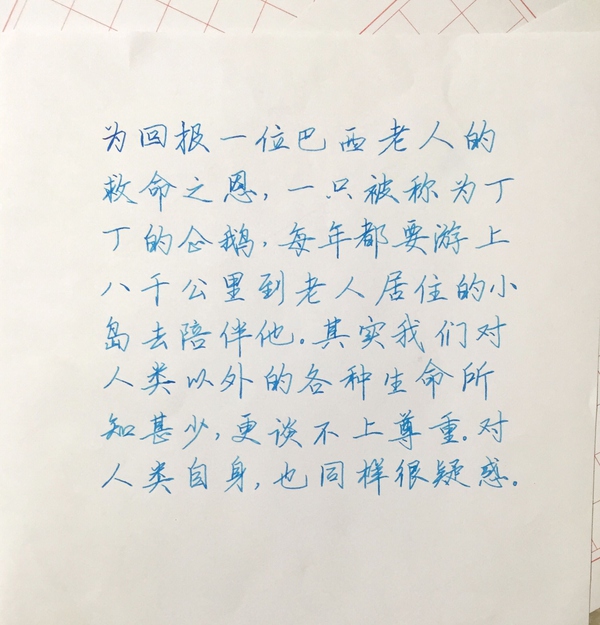 为回报一位巴西老人的
救命之恩,一只被称为丁
丁的企鹅,每年都要游上
八千公里到老人居住的小
岛去陪伴他。其实我们对
人类以外的各种生命所
知甚少,更谈不上尊重。对
人类自身,也同样很疑惑。